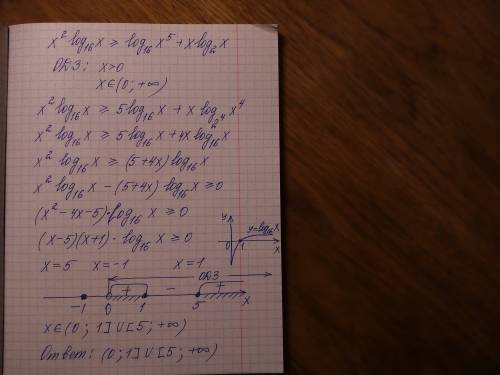 x² log₁₆x ≥ log₁₆x⁵ + x log₂x
ОДЗ: x>0
x∈(0; +∞)
x² log₁₆x ≥ 5log₁₆x + x log₂₄x⁴
x² log₁₆x ≥ 5log₁₆x + 4x log₁₆x
x² log₁₆x ≥ (5+4x) log₁₆x
x² log₁₆x − (5+4x) log₁₆x ≥ 0
(x²−4x−5)·log₁₆x ≥ 0
(x−5)(x+1)·log₁₆x ≥ 0
y y=log₁₆x
0 1 x
x=5 x=−1 x=1
ОДЗ
+ − +
−1 0 1 5 x
x∈(0; 1]∪[5; +∞)
Ответ: (0; 1]∪[5; +∞)